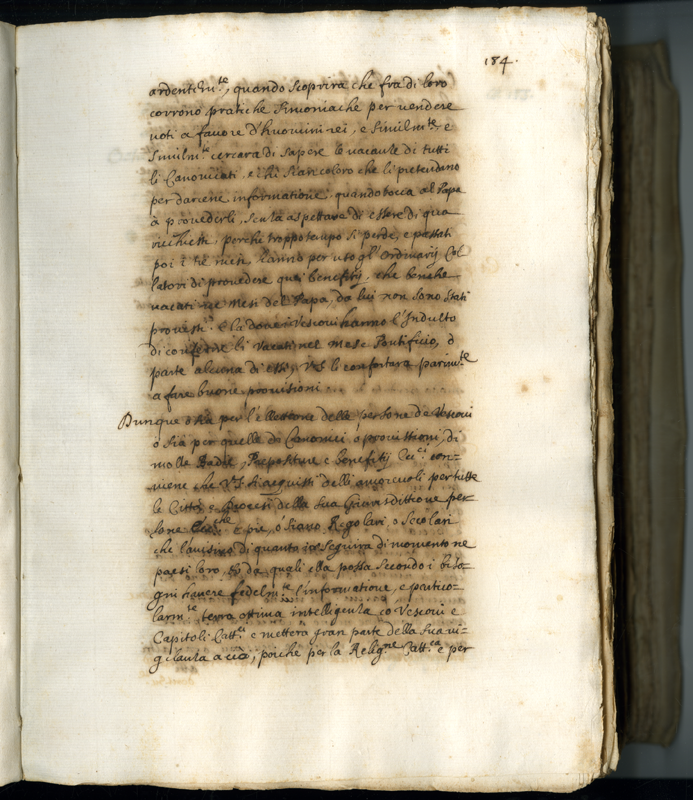 184.
ardentem.te, quando scoprirà che fra di loro
corrono pratiche simoniache per vendere
voti a favore d'huomini rei, e similm.te e
similm.te cercarà di sapere le vacanze di tutti
li Canonicati, e chi sian coloro che li pretendano
per darcene informatione, quando tocca al Papa
à provederli, senza aspettare di essere di qua
richiesti, perche troppo tempo si perde, e passati
poi i tre mesi, hanno per uso gl'Ordinarij Col
latori di provedere quei benefitij, che benche
vacati ne mesi del Papa, da lui non sono stati
provisti. E la dove i Vescovi hanno l'Indulto
di conferire li vacati nel mese Pontificio, ò
parte alcuna di essi, V.S. li confortarà parim.te
a fare buone provisioni
Dunque o sia per l'elettione delle persone de Vescovi
o sia per quelle de Canonici, ò provisioni, di
molte Badie, Prepositure e benefitij con=
viene che V.S. si acquisti delli amorevoli per tutte
le Città, e Diocesi della sua Giurisdittione per=
sone e pie, ò siano Regolari, o Secolari
che l'avisino di quanto seguirà di momento ne
paesi loro, da quali ella possa secondo i biso=
gni havere fedelm.te l'informatione, e partico=
larm.te terrà ottima intelligenza co Vescovi e
Capitoli Catt.ci e metterà gran parte della sua vi=
gilanza a ciò; poiche per la Relig.ne Catt.ca e per